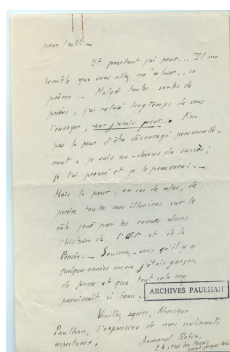 pour l'art. —
Et pourtant j'ai peur... Il me
semble que vous allez me refuser... ce
poème. — Malgré toutes sortes de
j'ai refusé longtemps de vous
l'envoyer, car j'avais peur. Non
pas la peur d'être découragé personnelle-
ment : je suis au-dessus du succès ;
je l'ai prouvé et je le prouverai. —
Mais la peur, en cas de refus, de
perdre toutes mes illusions sur le
rôle joué par les revues dans
l'histoire de l'Art et de la
Pensée. — qu'il y a
quelques années encore j'étais garçon
de ferme et que tout cela me
paraissait si beau.
ARCHIVES PAULHAN
Veuillez agréer, Monsieur
Paulhan, l'expression de mes sentiments
respectueux.
Armand Robin